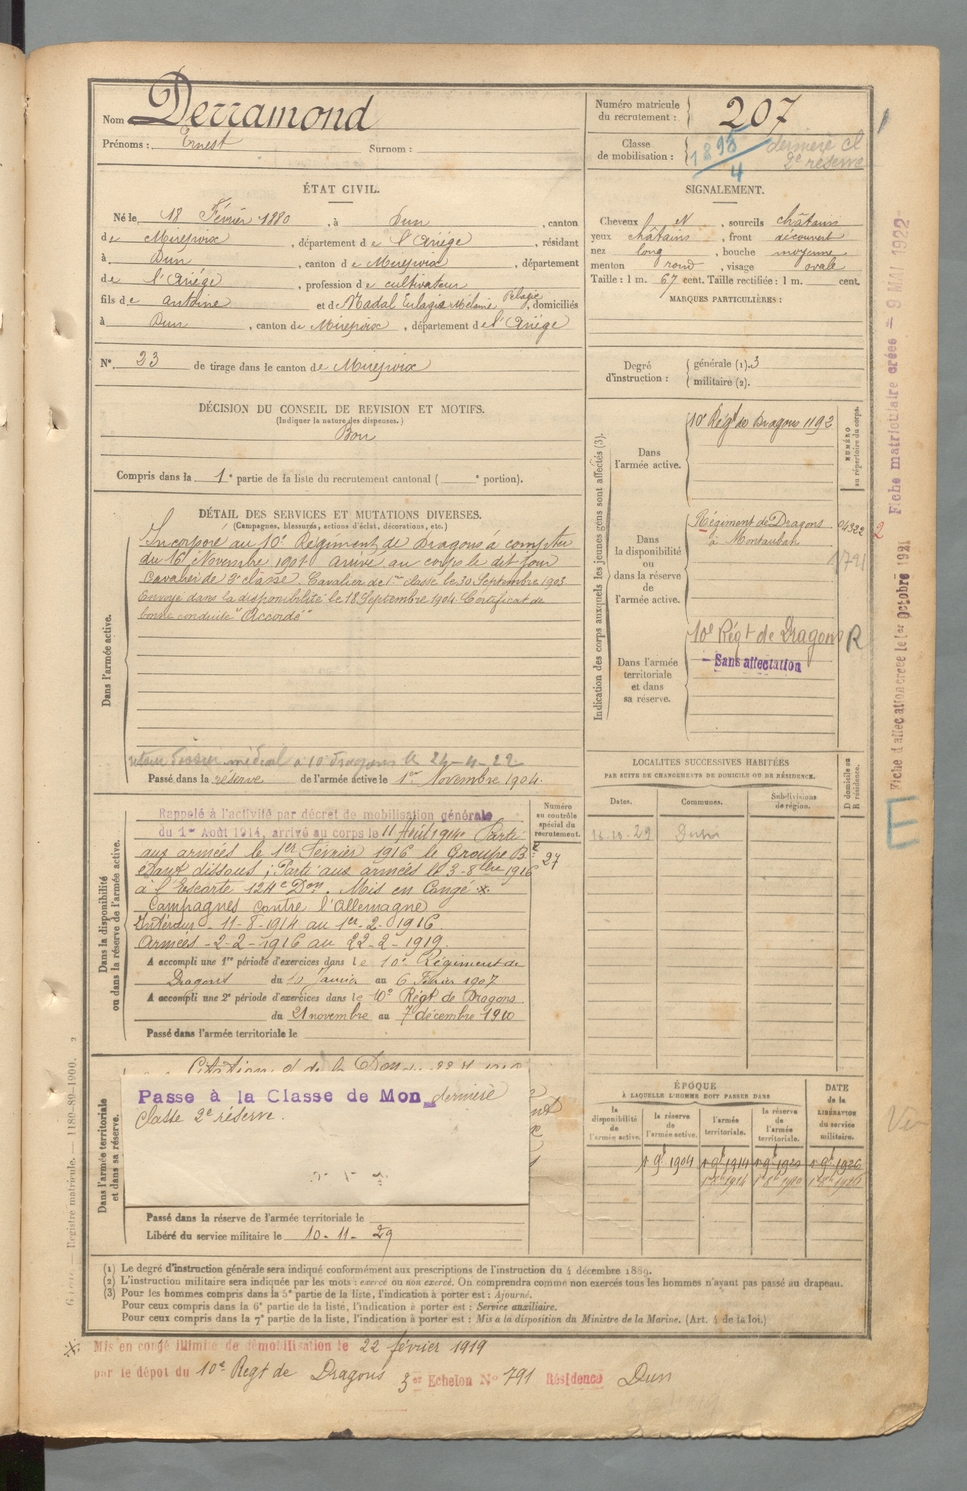 Nom Derramond
Prénoms : Ernest Surnom :
Numéro matricule du recrutement : 207
Classe de mobilisation : 1898/4 dernière cl 2e réserve
ÉTAT CIVIL.
Né le 18 Février 1880, à Dun, canton
de Mirepoix, département de l'Ariége, résidant
à Dun, canton de Mirepoix, département
de l'Ariége, profession de cultivateur
fils de antoine et de Madal Eulagie Mélanie Pélagie, domiciliés
à Dun, canton de Mirepoix, département de l'Ariége
N° 23 de tirage dans le canton de Mirepoix
SIGNALEMENT.
Cheveux N, sourcils châtains
yeux châtains, front découvert
nez long, bouche moyenne
menton rond, visage ovale
Taille : 1 m. 67 cent. Taille rectifiée : 1 m. cent.
MARQUES PARTICULIÈRES :
Degré d'instruction : générale (1). 3
militaire (2).
DÉCISION DU CONSEIL DE REVISION ET MOTIFS.
(Indiquer la nature des dispenses.)
Bon
Compris dans la 1e partie de la liste du recrutement cantonal ( e portion).
DÉTAIL DES SERVICES ET MUTATIONS DIVERSES.
(Campagnes, blessures, actions d'éclat, décorations, etc.)
Dans l'armée active.
Incorporé au 10e Régiment de Dragons à compter
du 16 Novembre 1901 arrivé au corps le dit jour
Cavalier de 2e classe. Cavalier de 1re classe le 30 Septembre 1903
Envoyé dans la disponibilité le 18 Septembre 1904. Certificat de
bonne conduite "Accordé"
retour dossier médical à 10 Dragons le 24-4-22
Passé dans la réserve de l'armée active le 1er Novembre 1904.
Indication des corps auxquels les jeunes gens sont affectés (3).
NUMÉRO au répertoire du corps.
Dans l'armée active.
10e Régt de Dragons 1192
Dans la disponibilité ou dans la réserve de l'armée active.
Régiment de Dragons 04322
à Montauban
1791
Dans l'armée territoriale et dans sa réserve.
10e Régt de Dragons R
Sans affectation
Dans la disponibilité ou dans la réserve de l'armée active.
Numéro au contrôle spécial du recrutement.
27
Rappelé à l'activité par décret de mobilisation générale
du 1er Août 1914, arrivé au corps le 11 Août 1914. Parti
aux armées le 1er Février 1916 le Groupe B
étant dissous ; Parti aux armées le 3-8bre 1916
à l'Escorte 124e Don. Mis en Congé *
Campagnes contre l'Allemagne
Intérieur - 11-8-1914 au 1er-2-1916.
Armées - 2-2-1916 au 22-2-1919.
A accompli une 1re période d'exercices dans le 10e Régiment de
Dragons du 10 Janvier au 6 Février 1907
A accompli une 2e période d'exercices dans le 10e Régt de Dragons
du 21 novembre au 7 décembre 1910
Passé dans l'armée territoriale le
LOCALITÉS SUCCESSIVES HABITÉES
PAR SUITE DE CHANGEMENTS DE DOMICILE OU DE RÉSIDENCE.
Dates. Communes. Subdivisions de région. D domicile ou R résidence.
29 Dun
Dans l'armée territoriale et dans sa réserve.
Passe à la Classe de Mon dernière
classe 2e réserve.
Passé dans la réserve de l'armée territoriale le
Libéré du service militaire le 10-11-29
ÉPOQUE
À LAQUELLE L'HOMME DOIT PASSER DANS
la disponibilité de l'armée active. la réserve de l'armée active. l'armée territoriale. la réserve de l'armée territoriale. DATE de la LIBÉRATION du service militaire.
1 9b 1904 1 9b 1914 1 9b 1920 1 9b 1926
(1) Le degré d'instruction générale sera indiqué conformément aux prescriptions de l'instruction du 4 décembre 1889.
(2) L'instruction militaire sera indiquée par les mots : exercé ou non exercé. On comprendra comme non exercés tous les hommes n'ayant pas passé au drapeau.
(3) Pour les hommes compris dans la 5e partie de la liste, l'indication à porter est : Ajourné.
Pour ceux compris dans la 6e partie de la liste, l'indication à porter est : Service auxiliaire.
Pour ceux compris dans la 7e partie de la liste, l'indication à porter est : Mis à la disposition du Ministre de la Marine. (Art. 4 de la loi.)
* Mis en congé illimité de démobilisation le 22 février 1919
par le dépôt du 10e Regt de Dragons 3e Echelon N° 791 Résidence Dun
Registre matricule. — 1180-89-1900.
Fiche d'affectation créée le 1er Octobre 1921
Fiche matriculaire créée = 9 MAI 1922
2
E